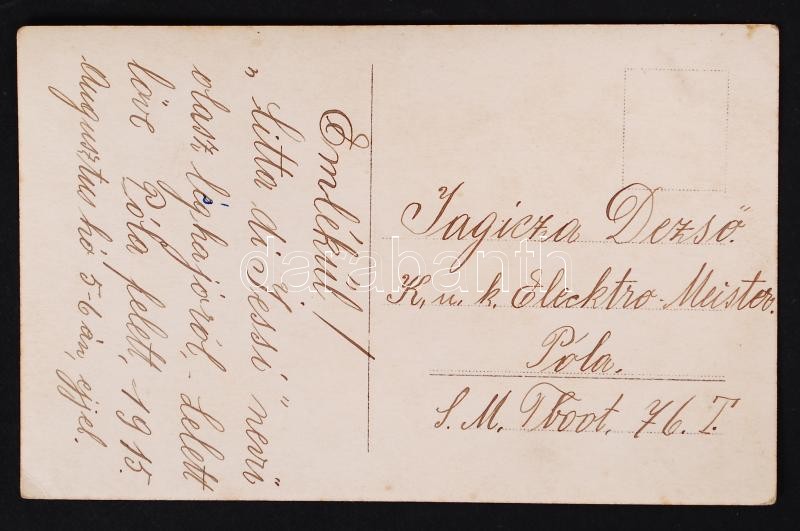 Emlékül!
„Citta di Jessi" nevü
olasz léghajóról, - Lelett
löve Póla felett, 1915.
Augusztus hó 5-6 án, éjjel.
Jagicza Dezső.
K. u. k. Elecktro-Meister.
Póla.
S. M. Tboot. 76. T.
darabanth